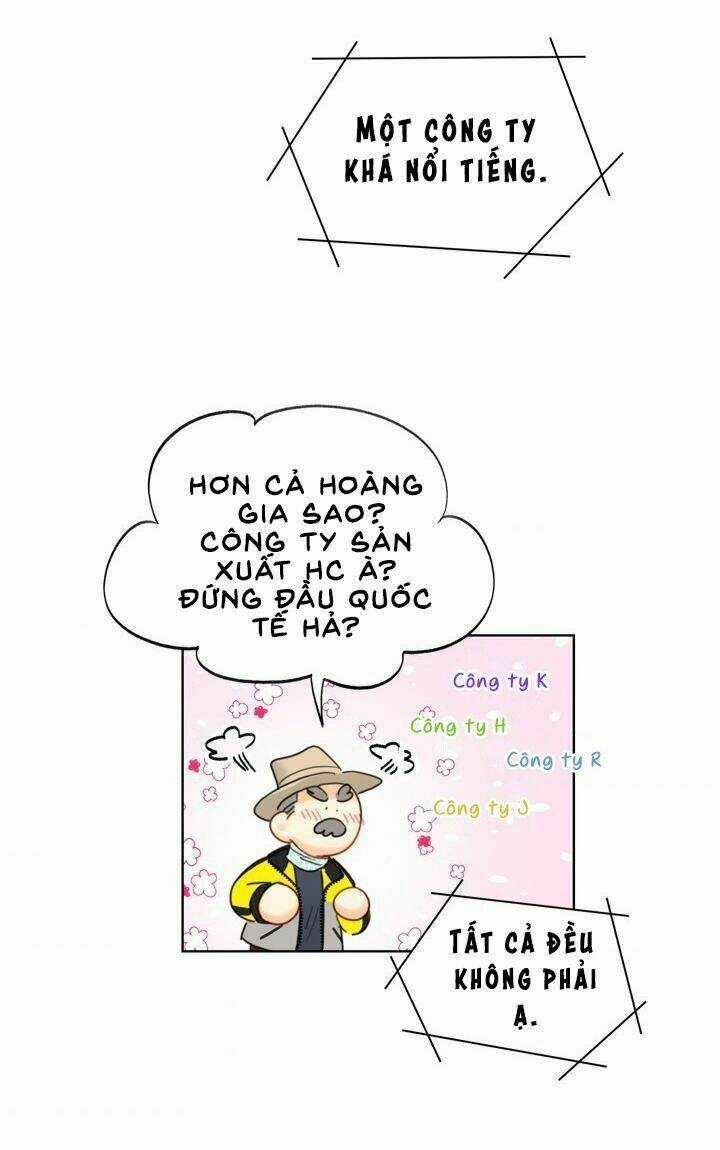 MỘT CÔNG TY
KHÁ NỔI TIẾNG.
HƠN CẢ HOÀNG
GIA SAO?
CÔNG TY SẢN
XUẤT HC À?
ĐỨNG ĐẦU QUỐC
TẾ HẢ?
Công ty K
Công ty H
Công ty R
Công ty J
TẤT CẢ ĐỀU
KHÔNG PHẢI
Ạ.